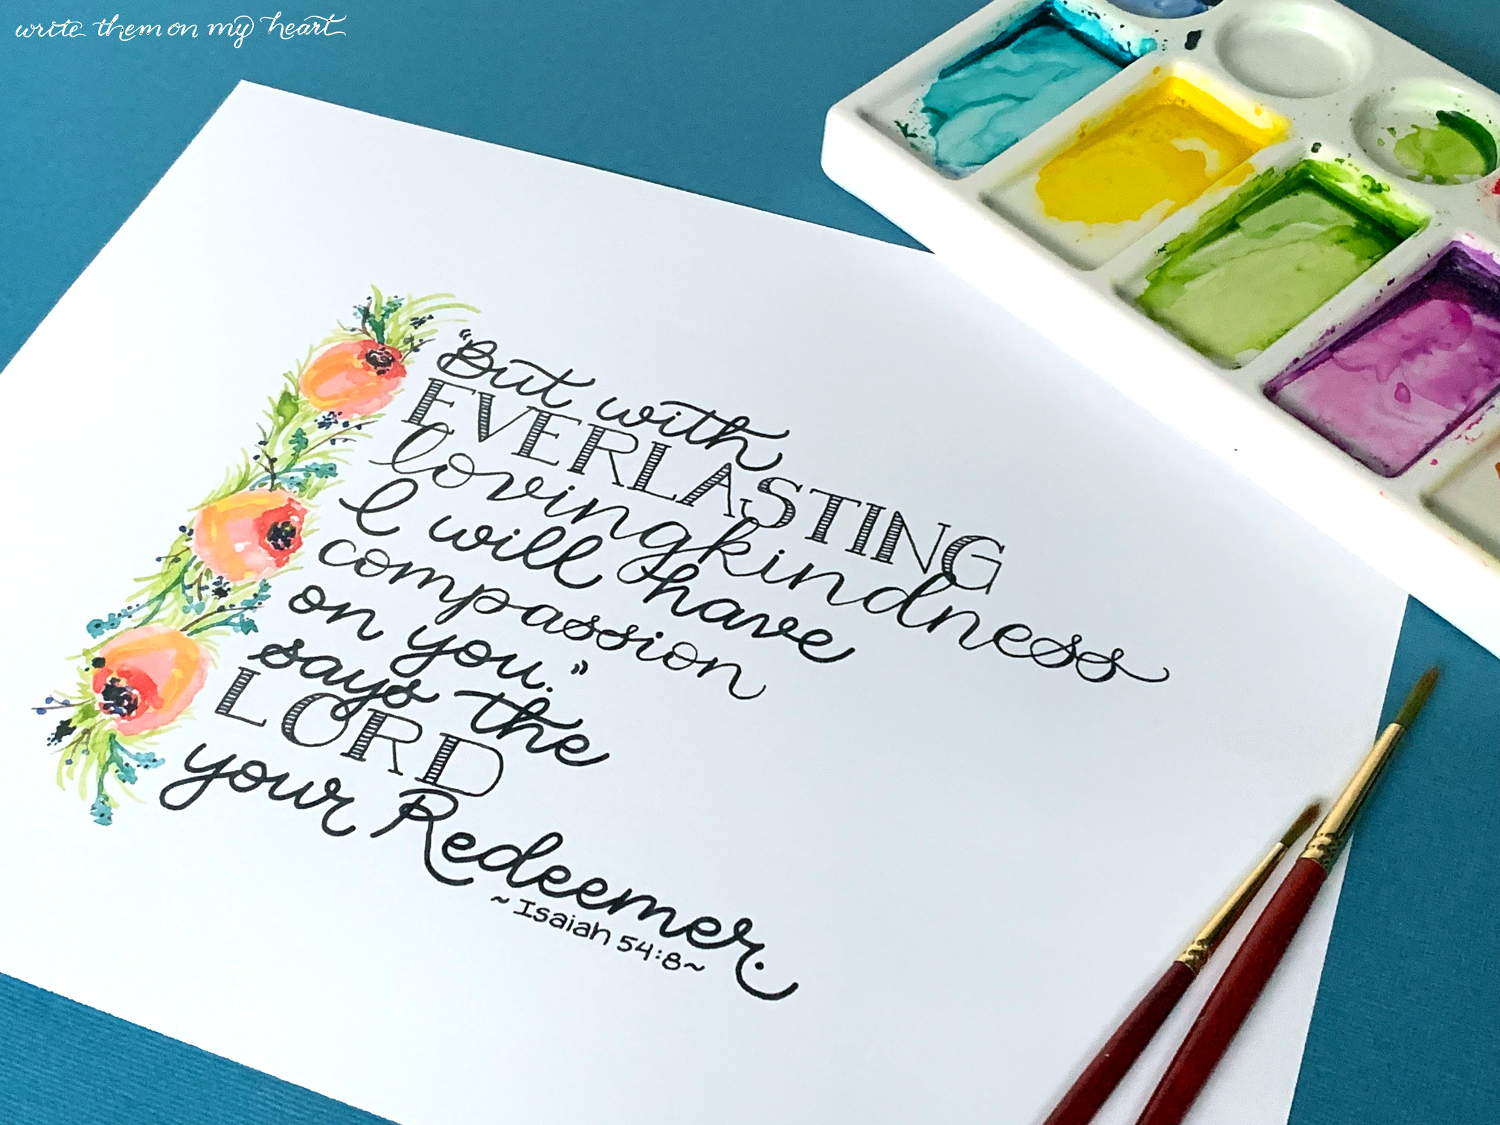 write them on my heart
"But with
EVERLASTING
lovingkindness
I will have
compassion
on you."
says the
LORD
your Redeemer.
~Isaiah 54:8~